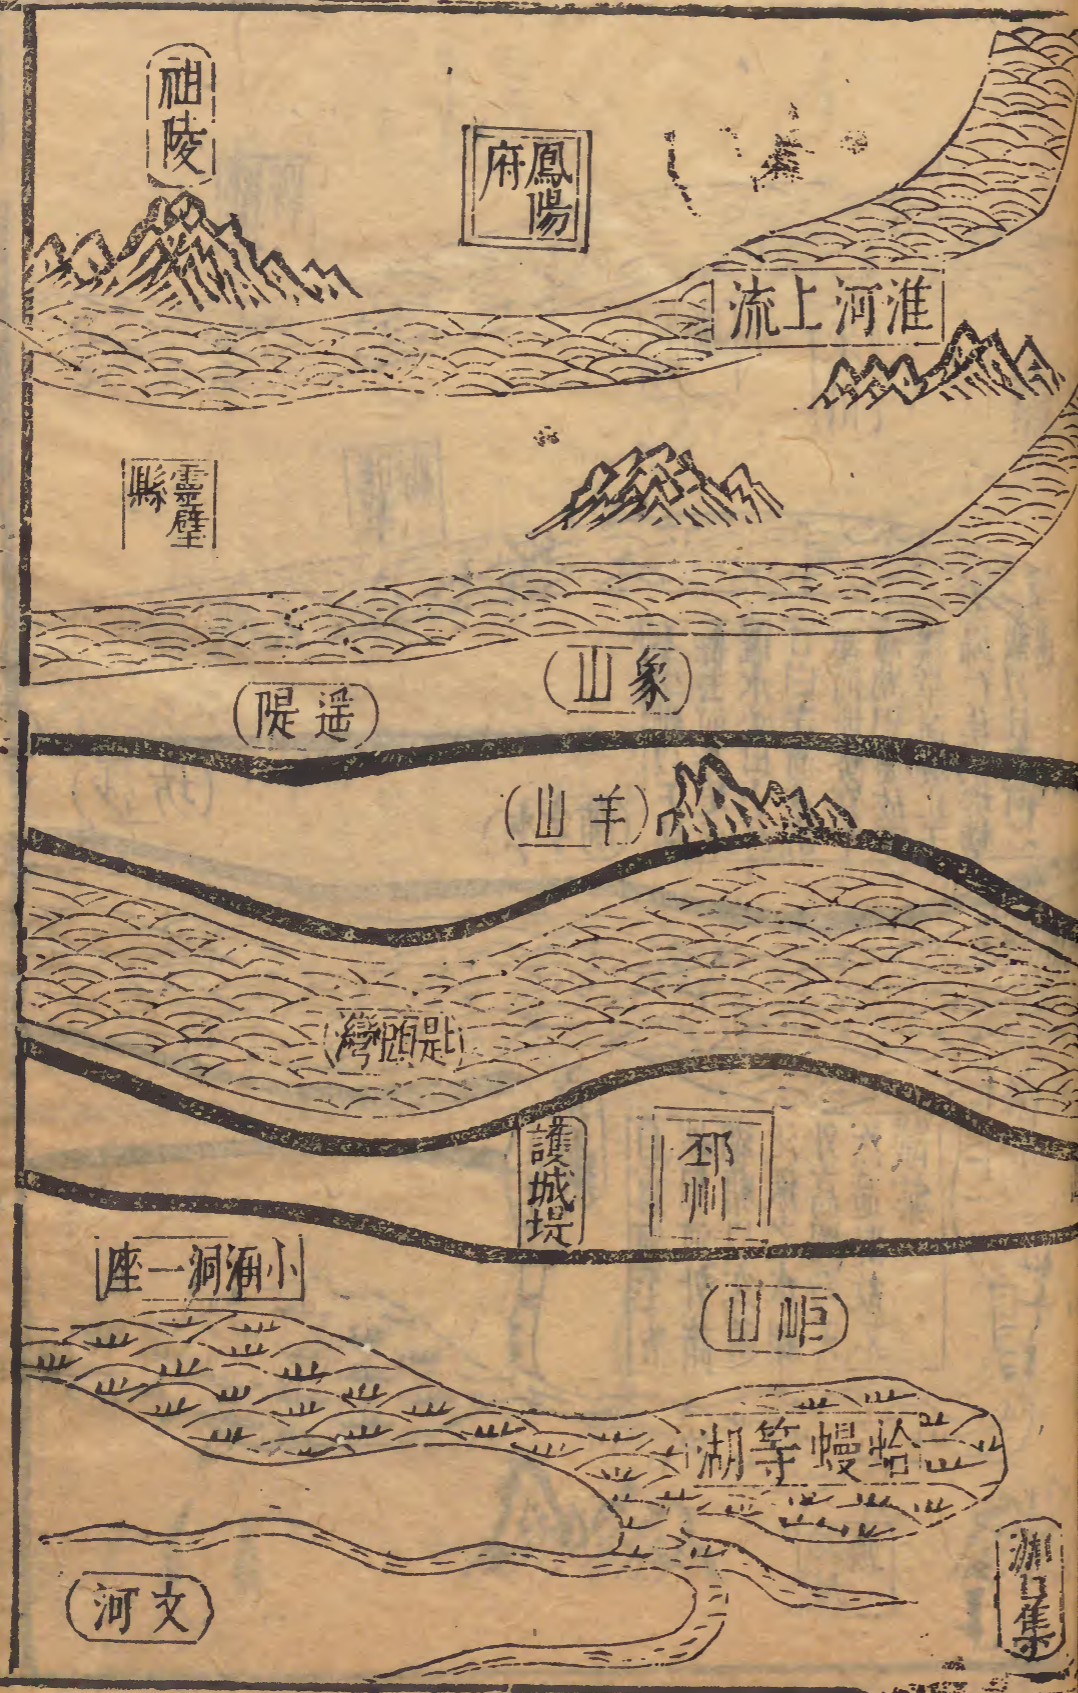 祖陵
鳳陽府
淮河上流
靈璧縣
象山
遥隄
羊山
匙頭灣
護城堤
邳州
小涵洞一座
岠山
蛤鰻等湖
文河